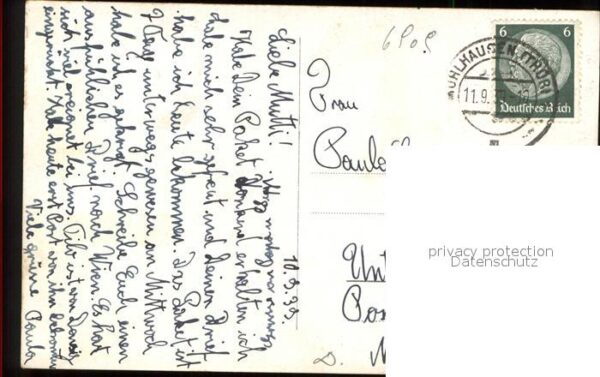 10.9.39.
Liebe Mutti!
Habe Dein Paket dankend erhalten ich
habe mich sehr gefreut und Deinen Brief
habe ich heute bekommen. Das Paket ist
7 Tage unterwegs gewesen am Mittwoch
habe ich es erhalten. Schreibe Euch einen
ausführlichen Brief nach Wien. Es hat
sich viel ereignet bei uns. ist von
Habe heute erst Post von ihm bekommen
Viele Grüsse Paula
6P09
6 6
Deutsches Reich
MÜHLHAUSEN (THÜR)
11.9.
Frau
Paula
Unt
Pos
D.
privacy protection
Datenschutz